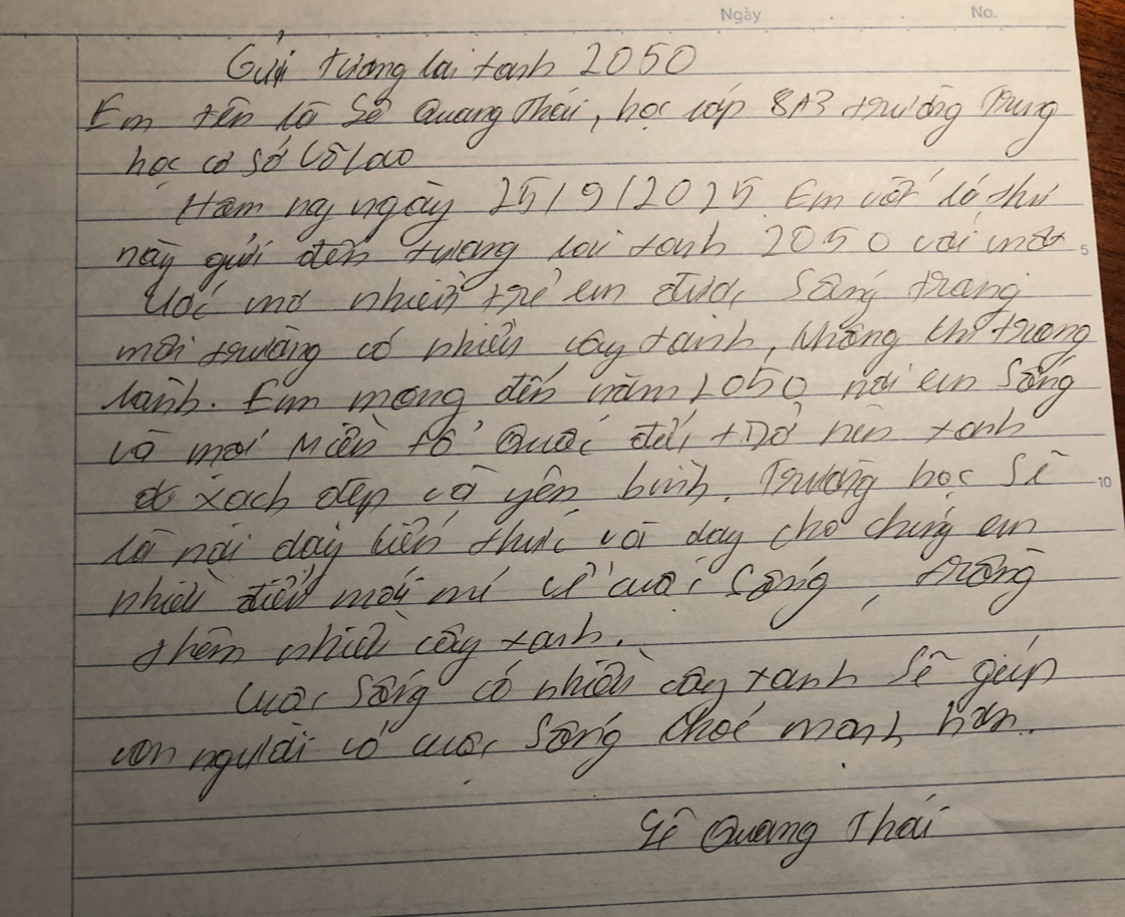 Ngày No.
Gửi tương lai xanh 2050
Em tên là Lê Quang Thái, học lớp 8A3 trường Trung
học cơ sở Võ Lao
Hôm nay ngày 25/9/2025 Em viết lá thư
này gửi đến tương lai xanh 2050 với một
ước mơ nhiều trẻ em được sống trong
môi trường có nhiều cây xanh, không khí trong
lành. Em mong đến năm 2050 nơi em sống
và mọi miền tổ quốc đều trở nên xanh
xạch đẹp và yên bình. Trường học sẽ
là nơi dạy kiến thức và dạy cho chúng em
nhiều điều mới mẻ về cuộc sống, trồng
thêm nhiều cây xanh.
cuộc sống có nhiều cây xanh sẽ giúp
con người có cuộc sống khoẻ mạnh hơn.
Lê Quang Thái
5
10